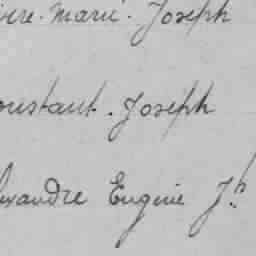 Marie. Joseph
onstant. Joseph
lexandre Eugénie Jh